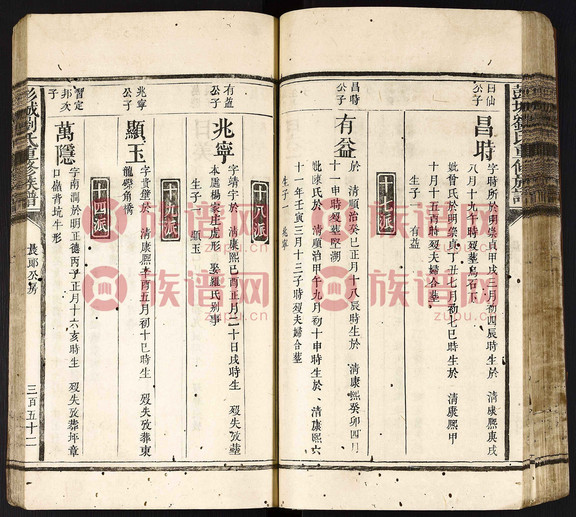 彭城劉氏重修族譜
日仙
公子
昌時
字時所於明崇貞甲戌三月初四辰時生於 清康熙庚戌
八月十九午時歿葬烏石下
妣曾氏於明崇貞丁丑七月初七巳時生於 清康熙甲
十月十五酉時歿夫婦合葬
生子 有益
十七派
昌時
公子
有益
於 清順治癸巳正月十八辰時生於 清康熙癸卯四月
十一申時歿葬堅湖
妣陳氏於 清順治甲午九月初十申時生於 清康熙六
十一年壬寅三月十三子時歿夫婦合葬
生子 兆寧
十八派
有益
公子
兆寧
字靖宇於 清康熙己酉正月二十日戌時生 歿失攷葬
本處楊家庄虎形 娶羅氏別事
生子 顯玉
十九派
兆寧
公子
顯玉
字貴璧於 清康熙辛酉五月初十巳時生 歿失攷葬東
龍磜角僑
十四派
智定
邦次
子
萬隱
字南澗於明正德丙子正月十六亥時生 歿失攷葬坪章
口儀背坑牛形
彭城劉氏重修族譜
長郎公房
三百五十二
族谱网
zupu.cn
族谱网
zupu.cn
族谱网
zupu.cn
族谱网
zupu.cn